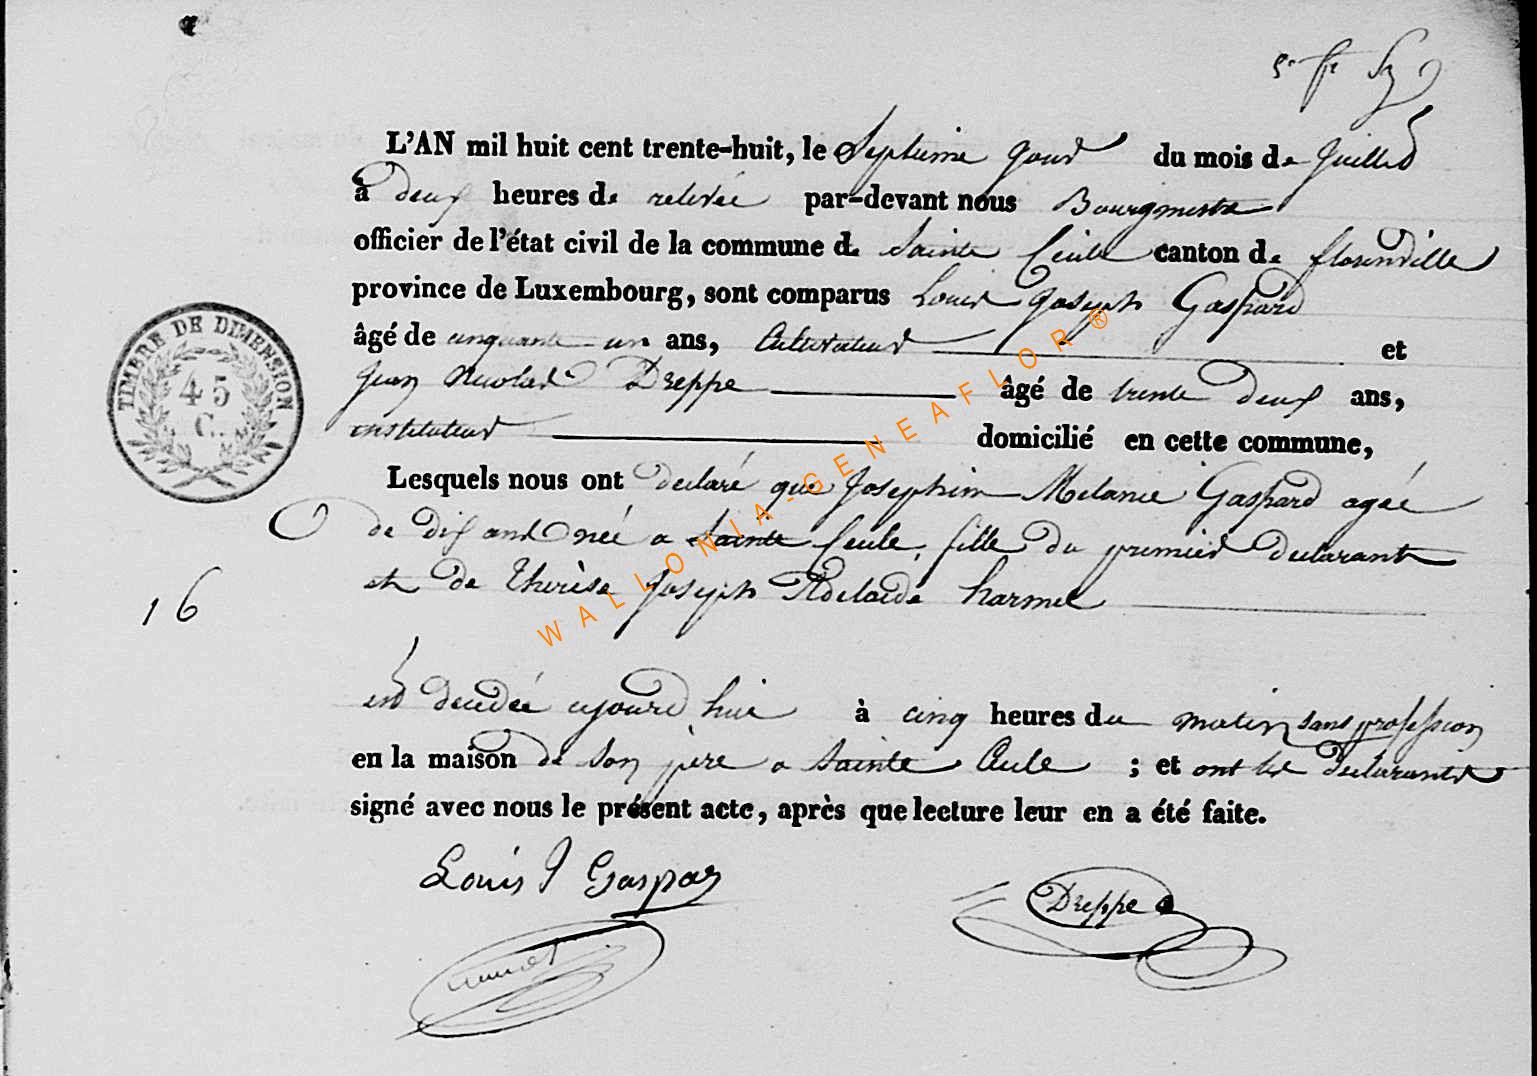 L'AN mil huit cent trente-huit, le Septieme jour du mois de Juillet
à deux heures de relevée par-devant nous Bourgmestre
officier de l'état civil de la commune de Sainte Cecile canton de florenville
province de Luxembourg, sont comparus Louis Joseph Gaspard
âgé de cinquante un ans, Cultivateur et
Jean Nicolas Dreppe âgé de trente deux ans,
instituteur domicilié en cette commune,
Lesquels nous ont déclaré que Josephine Melanie Gaspard agée
de dix ans née a Sainte Cecile, fille du premier declarant
et de Thérèse Joseph Adelaïde harmel
16
est decedée aujourd hui à cinq heures du matin sans profession
en la maison de son père a Sainte Cecile ; et ont les declarants
signé avec nous le présent acte, après que lecture leur en a été faite.
Louis J Gaspar
Dreppe
TIMBRE DE DIMENSION
45
C.
WALLONIA-GENEAFLOR ®